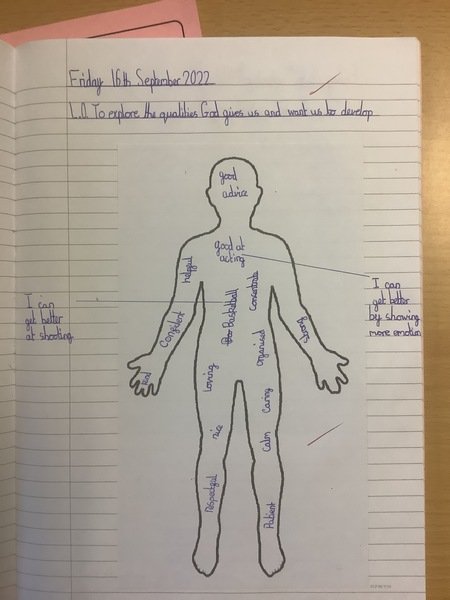 Friday 16th September 2022
L.O. To explore the qualities God gives us and want us to develop
good
advice
good at
acting
helpful
Concentrate
I can
get better
at shooting.
I can
get better
by showing
more emotion
Basketball
Confident
Organised
Strong
Loving
Caring
nice
Calm
Respectful
Patient